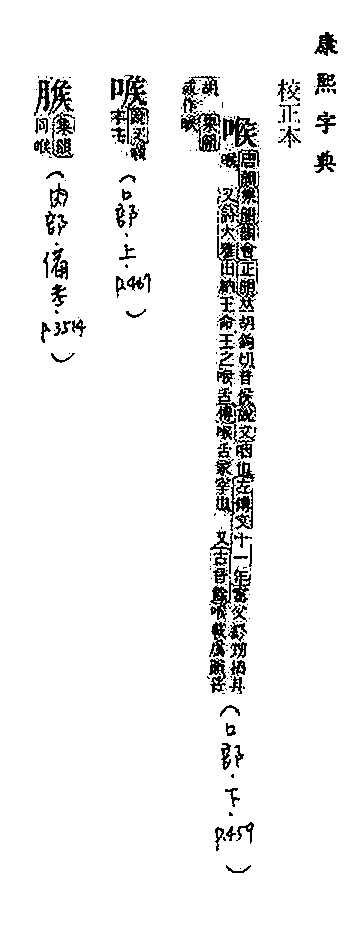 康熙字典
校正本
喉
唐韻集韻韻會正韻𠀤胡鉤切音侯說文咽也左傳文十一年富父終甥摏其
喉 又詩大雅出納王命王之喉舌傳喉舌冢宰也 又古音
胡
集韻
或作
(口部.下.p.459)
說文
本字
(口部.上.p.467)
集韻
同喉
(肉部.備考.p.3514)